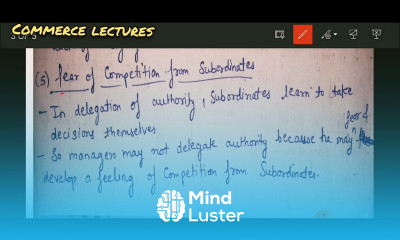 COMMERCE LECTURES
(5) fear of Competition from Subordinates
- In delegation of authority, Subordinates learn to take
decisions themselves.
fear of
- So managers may not delegate authority because he may
develop a feeling of Competition from Subordinates.
Mind
Luster